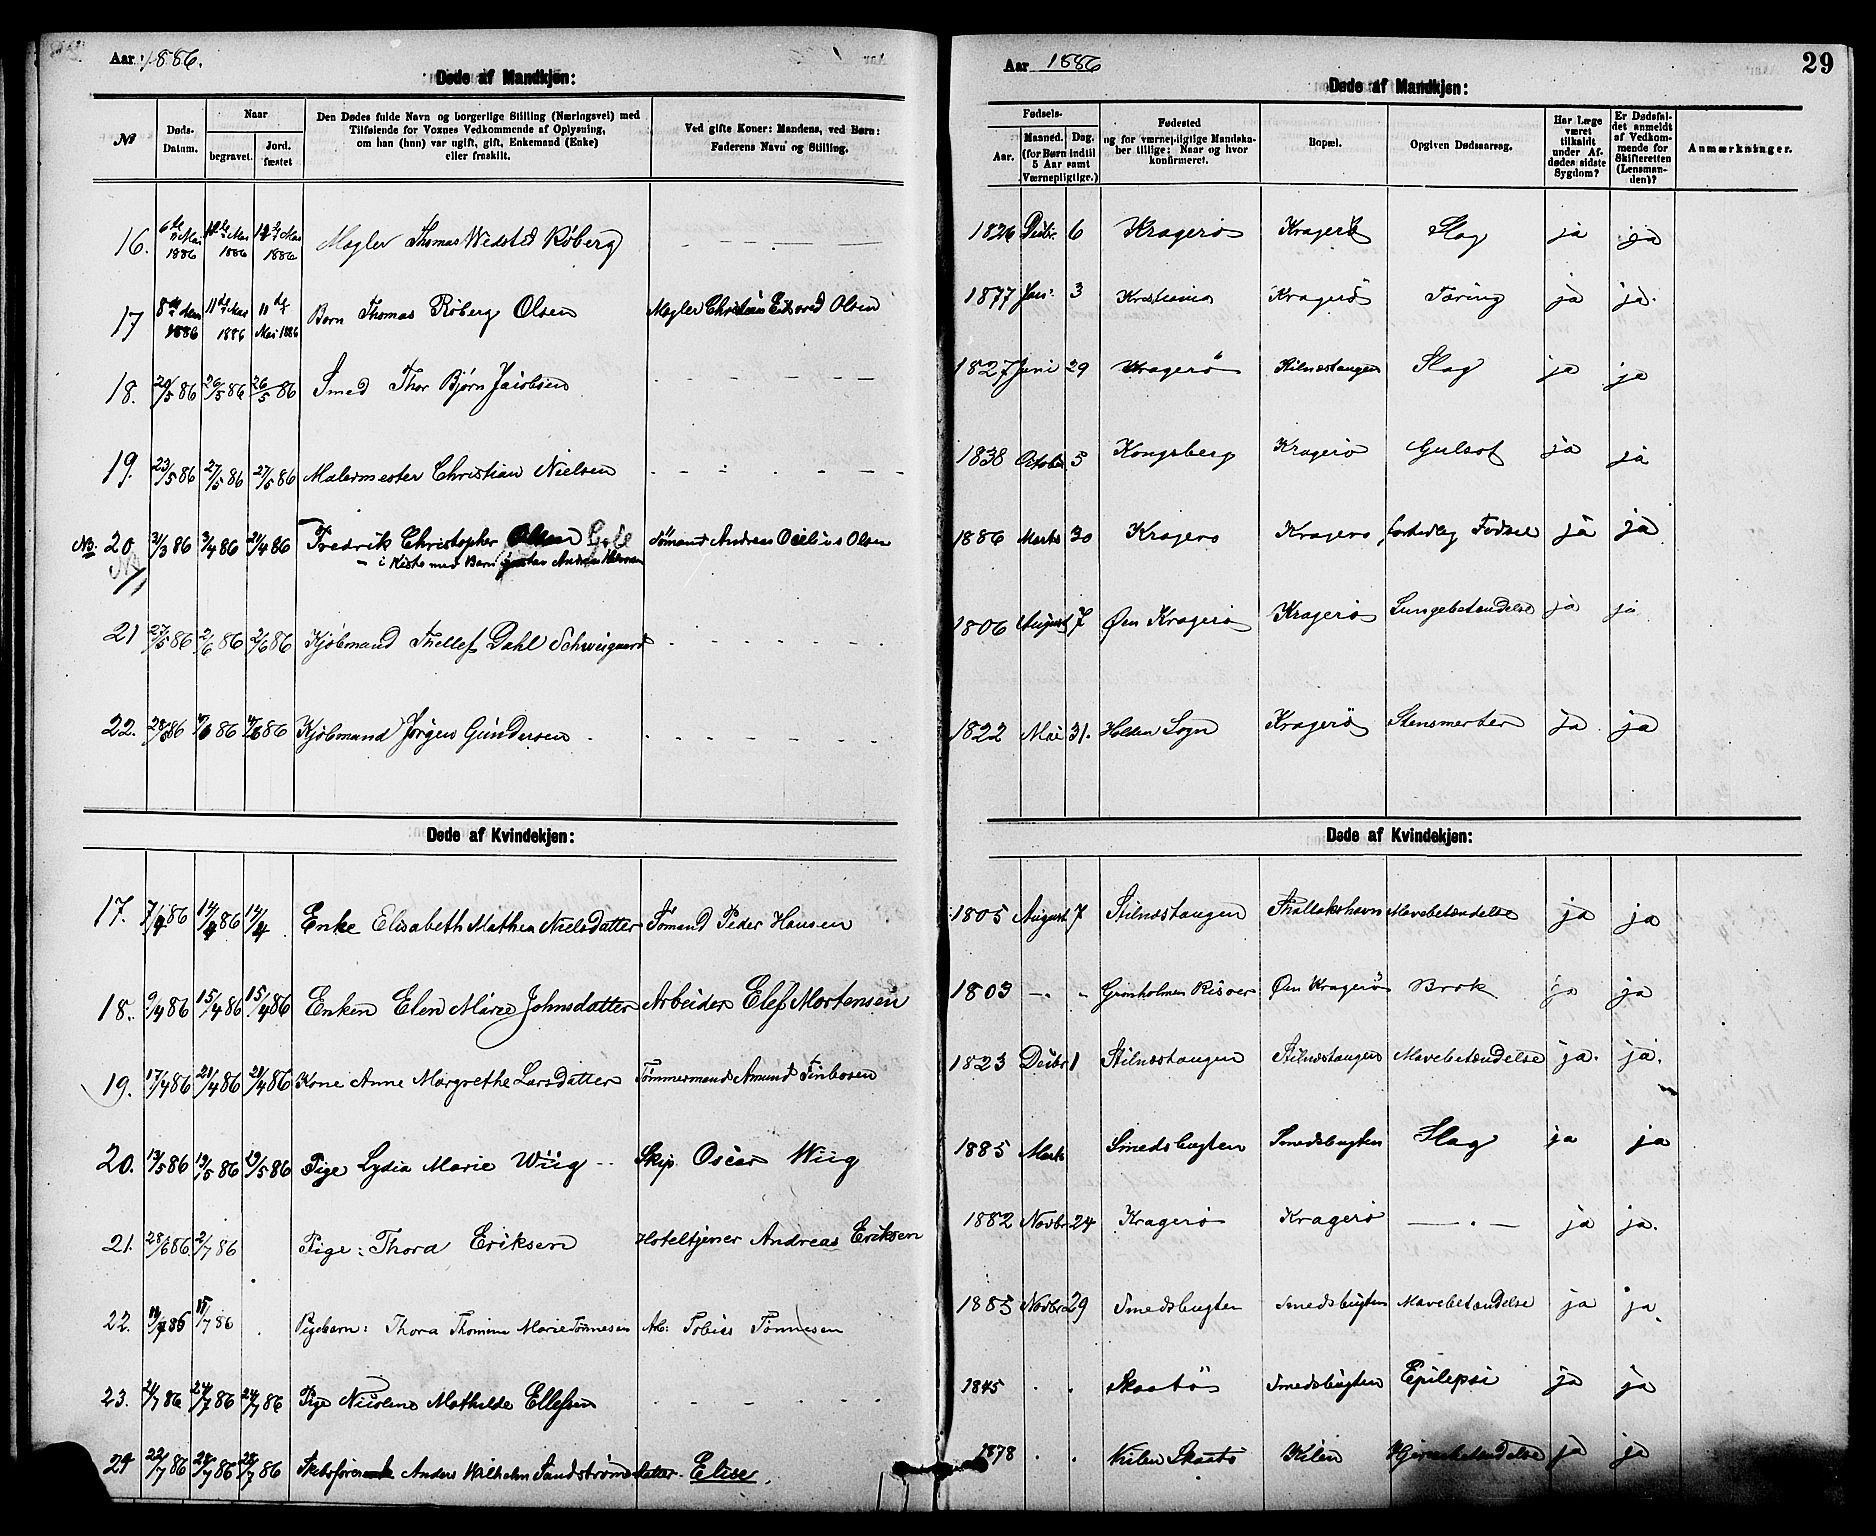 Aar 1886.
Døde af Mandkjøn:
№
Døds-Datum.
Naar
begravet.
Jord-fæstet
Den Dødes fulde Navn og borgerlige Stilling (Næringsvei) med
Tilføiende for Voxnes Vedkommende af Oplysning,
om han (hun) var ugift, gift, Enkemand (Enke)
eller fraskilt.
Ved gifte Koner: Mandens, ved Børn:
Faderens Navn og Stilling.
16. 6te Mai 1886 Mai 1886 Mai 1886 Mægler Thomas Wedsted Røberg
17 8de 1886 11te Mai 1886 11te Mai 1886 Barn Thomas Røberg Olsen Mægler Christian Olsen
18. 20/5 86 26/5 86 26/5 86 Smed Thor Bjørn Jacobsen
19. 23/5 86 27/5 86 27/5 86 Malermester Christian Nielsen
NB. 20 31/3 86 3/4 86 21/4 86 Fredrik Christopher Olsen
i Kiste med Barn Gustav
Sømand Andreas Olsen
21 27/5 86 2/6 86 2/6 86 Kjøbmand Thellef Dahl Schweigaard
22. 28/5 86 4/6 86 4/6 86 Kjøbmand Jørgen Gundersen
Døde af Kvindekjøn:
17. 7/4 86 14/4 86 14/4 Enke Elisabeth Mathea Nielsdatter Sømand Peder Hansen
18. 9/4 86 15/4 86 15/4 86 Enken Elen Marie Johnsdatter Arbeider Elef Mortensen
19. 17/4 86 21/4 86 21/4 86 Kone Anne Margrethe Larsdatter Tømmermand Amund
20. 13/5 86 19/5 86 19/5 86 Pige Lydia Marie Wiig Skip. Oscar Wiig
21. 28/6 86 2/7 86 Pige: Thora Eriksen Hoteltjener Andreas Eriksen
22. /7 86 Pigebarn: Thora Thomine Marie Tønnesen Arb: Tobias Tønnesen
23. 21/7 86 24/7 86 24/7 86 Pige Nicoline Mathilde Ellefsen
24 22/7 86 28/7 86 28/7 86 Skibsfører Anders Wilhelm Sandstrøms datter Elise.
Aar 1886
29
Døde af Mandkjøn:
Fødsels-
Aar.
Maaned.
Dag.
(for Børn indtil
5 Aar samt
Værnepligtige.)
Fødested
og for værnepligtige Mandska-
ber tillige: Naar og hvor
konfirmeret.
Bopæl.
Opgiven Dødsaarsag.
Har Læge
været
tilkaldt
under Af-
dødes sidste
Sygdom?
Er Dødsfal-
det anmeldt
af Vedkom-
mende for
Skifteretten
(Lensman-
den)?
Anmærkninger.
1826 Decbr. 6 Kragerø Kragerø Slag ja ja
1877 Jan. 3 Kristiania Kragerø Tæring ja ja.
1827 Juni 29 Kragerø Stilnæstangen Slag ja ja
1838 October 5 Kongsberg Kragerø Gulsot ja ja
1886 Marts 30 Kragerø Kragerø fortidlig Fødsel ja ja
1806 August 7 Øen Kragerø Kragerø Lungebetændelse ja ja
1822 Mai 31. Holden Sogn Kragerø Stensmerter ja ja
Døde af Kvindekjøn:
1805 August 7 Stilnæstangen Thallakshavn Mavebetændelse ja ja
1803 Risøer Øen Kragerø Brok ja ja
1823 Decbr 1 Stilnæstangen Stilnæstangen Mavebetændelse ja. ja.
1885 Marts Smedsbugten Smedsbugten Slag ja ja
1882 Novbr 24 Kragerø Kragerø ja ja.
1885 Novbr 29 Smedsbugten Smedsbugten Mavebetændelse ja ja
1845 Skaatø Smedsbugten Epilepsi ja ja
1878 Kilen Skaatø Kilen ja ja